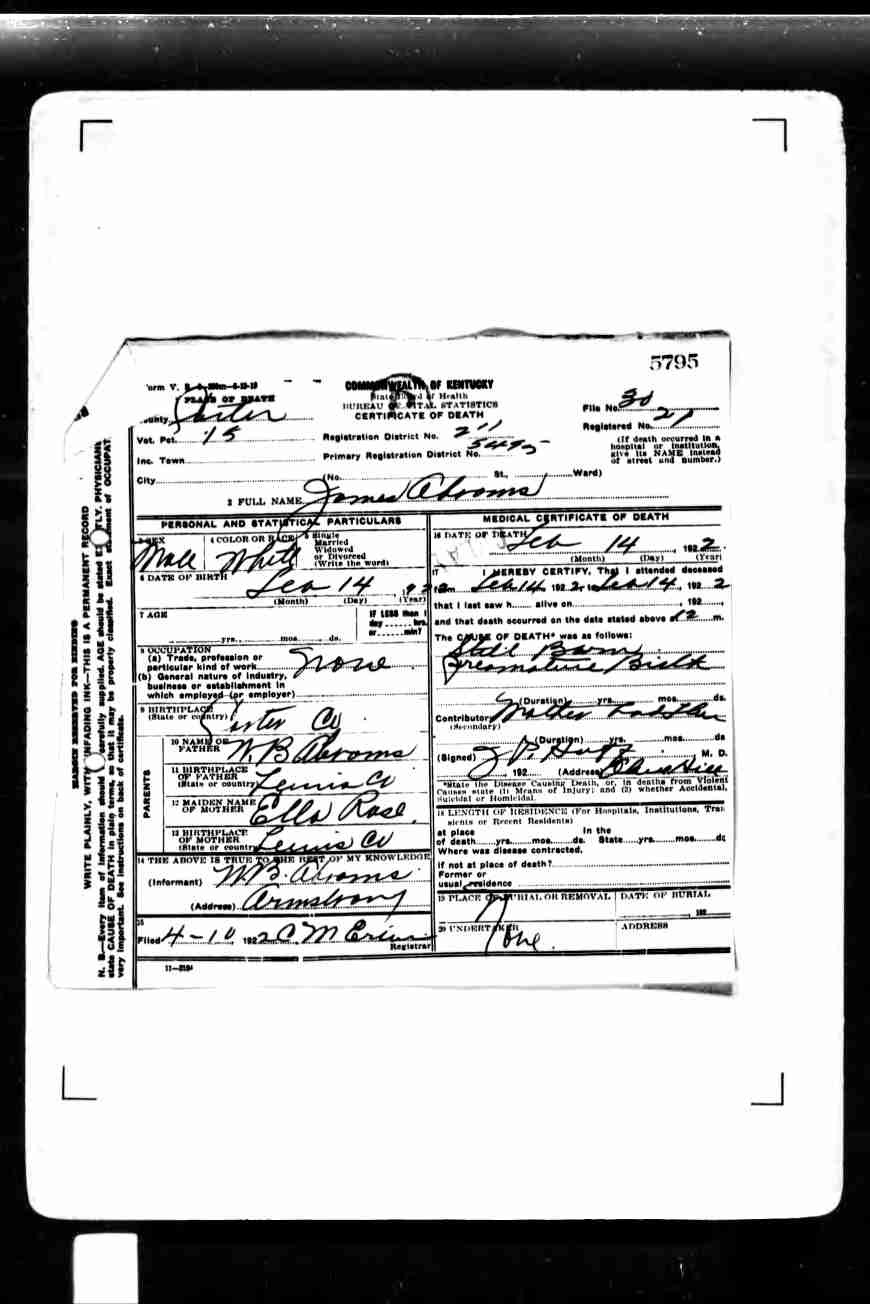 5795
orm V. S.
COMMONWEALTH OF KENTUCKY
State Board of Health
BUREAU OF VITAL STATISTICS
CERTIFICATE OF DEATH
PLACE OF DEATH
ounty Carter
File No. 30
Registered No. 21
(If death occurred in a hospital or institution, give its NAME instead of street and number.)
Vot. Pct. 15
Registration District No. 211
Inc. Town
Primary Registration District No. 5495
City (No. St., Ward)
2 FULL NAME James Abroms
PERSONAL AND STATISTICAL PARTICULARS
SEX Male
4 COLOR OR RACE White
5 Single Married Widowed or Divorced (Write the word)
6 DATE OF BIRTH Feb 14 922
(Month) (Day) (Year)
7 AGE yrs. mos. ds.
If LESS than 1 day hrs. or min?
8 OCCUPATION
(a) Trade, profession or particular kind of work None
(b) General nature of industry, business or establishment in which employed (or employer)
9 BIRTHPLACE
(State or country) Carter Co
PARENTS
10 NAME OF FATHER W. B Abroms
11 BIRTHPLACE OF FATHER (State or country) Lewis Co
12 MAIDEN NAME OF MOTHER Ella Rose
13 BIRTHPLACE OF MOTHER (State or country) Lewis Co
14 THE ABOVE IS TRUE TO THE BEST OF MY KNOWLEDGE
(Informant) W.B. Abroms
(Address) Armstrong
15
Filed 4-10 1922 C M
Registrar
11-3184
MEDICAL CERTIFICATE OF DEATH
16 DATE OF DEATH Feb 14 1922
(Month) (Day) (Year)
17 I HEREBY CERTIFY, That I attended deceased
from Feb 14, 1922 to Feb 14, 1922
that I last saw h alive on 192
and that death occurred on the date stated above 12 m.
The CAUSE OF DEATH* was as follows:
Still Born
Premature Birth
(Duration) yrs. mos. ds.
Contributory Mother
(Secondary)
(Duration) yrs. mos. ds
(Signed) M. D.
192 (Address) Hill
*State the Disease Causing Death, or, in deaths from Violent Causes state (1) Means of Injury; and (2) whether Accidental, Suicidal or Homicidal.
18 LENGTH OF RESIDENCE (For Hospitals, Institutions, Transients or Recent Residents)
at place of death yrs. mos. ds. In the State yrs. mos. ds
Where was disease contracted,
if not at place of death?
Former or usual residence
19 PLACE OF BURIAL OR REMOVAL
DATE OF BURIAL
192
20 UNDERTAKER None
ADDRESS
MARGIN RESERVED FOR BINDING
WRITE PLAINLY, WITH UNFADING INK—THIS IS A PERMANENT RECORD
N. B.—Every item of information should carefully supplied. AGE should be stated EXACTLY. PHYSICIANS
state CAUSE OF DEATH in plain terms, so that it may be properly classified. Exact statement of OCCUPAT
very important. See instructions on back of certificate.